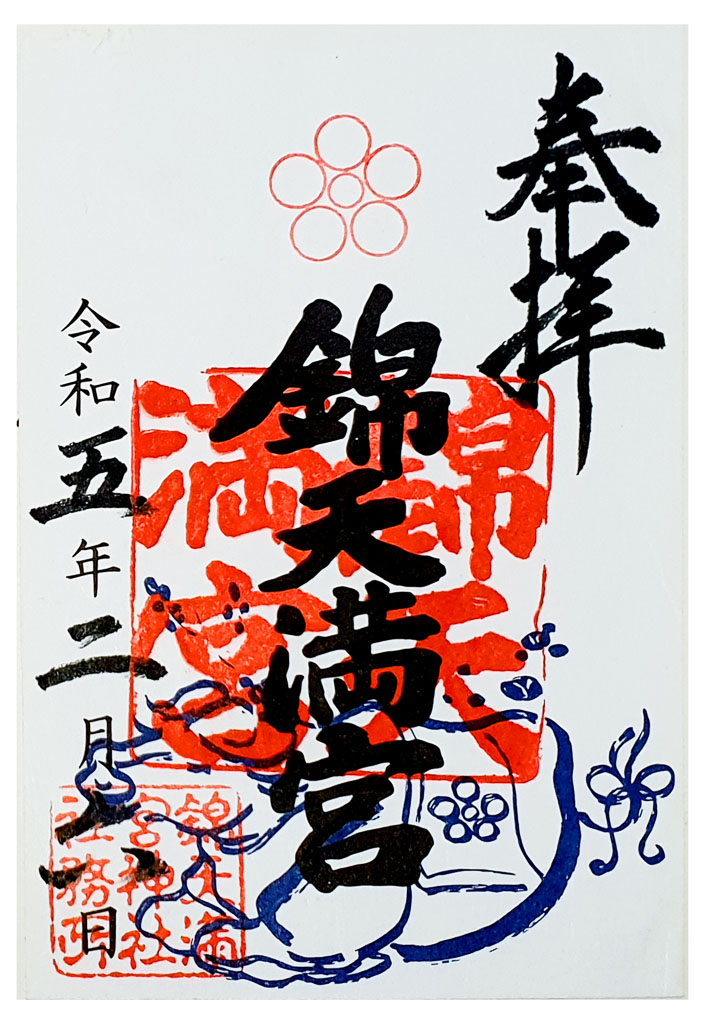 奉拝
錦天満宮
錦天
満宮
令和五年二月六日
錦天満
宮神社
社務所